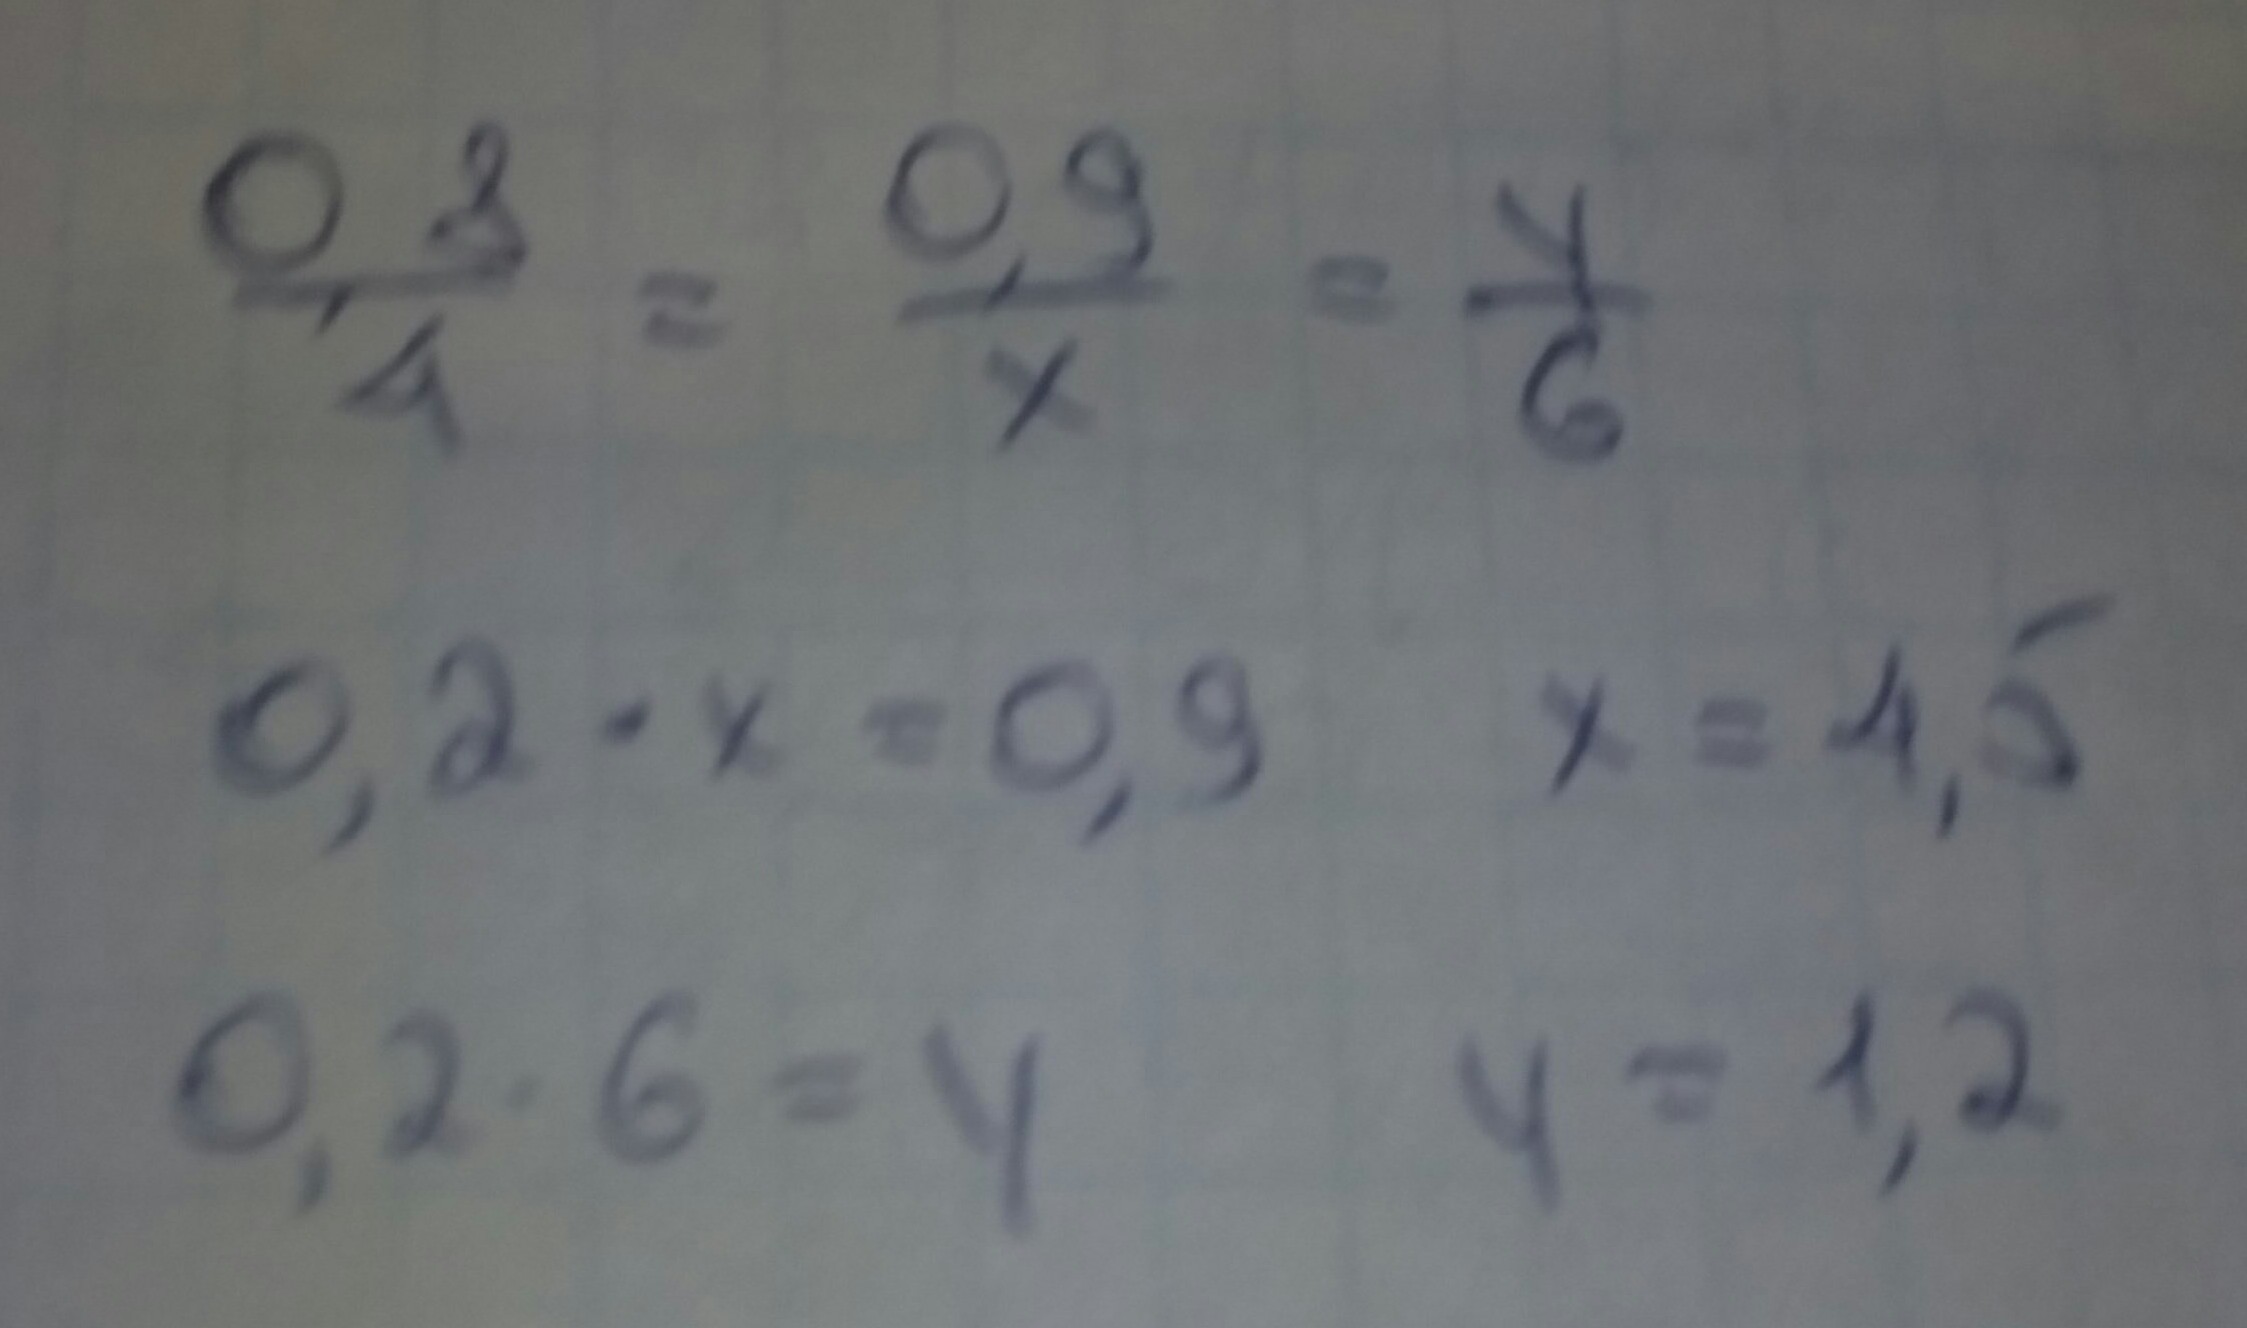 0,8/4 = 0,9/x = y/6
0,2 · x = 0,9 x = 4,5
0,2 · 6 = y y = 1,2